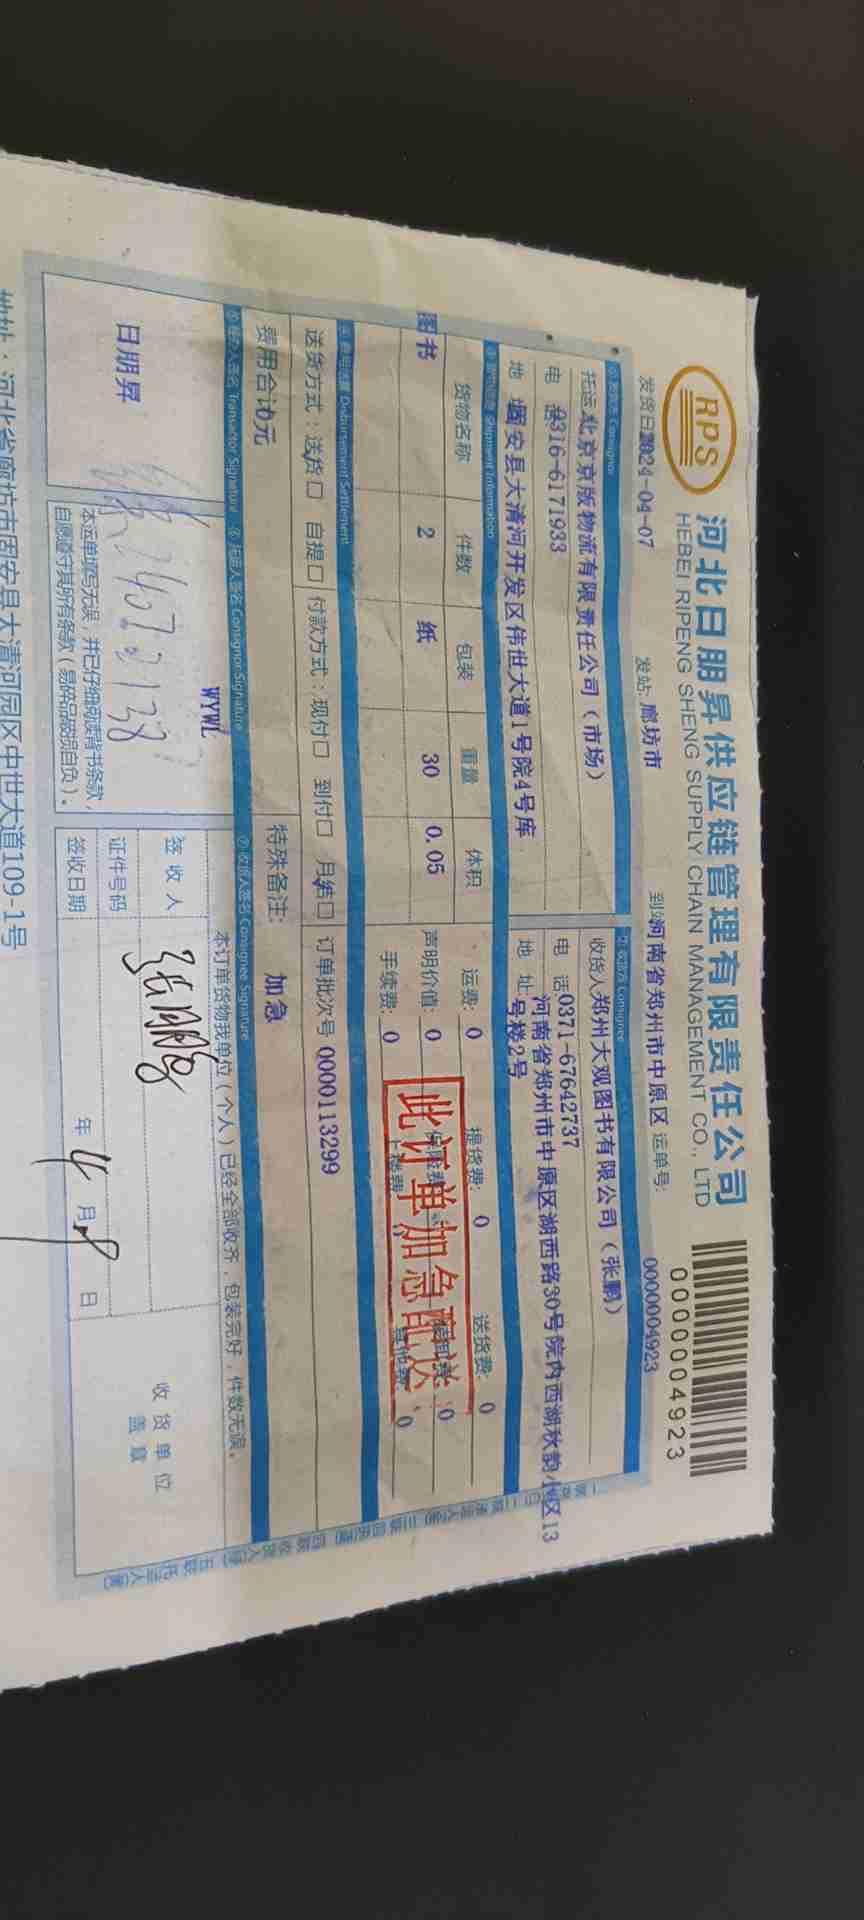 RPS
河北日朋昇供应链管理有限责任公司
HEBEI RIPENG SHENG SUPPLY CHAIN MANAGEMENT CO., LTD
0000004923
发货日2024-04-07 发站: 廊坊市 到站河南省郑州市中原区 运单号: 0000004923
①发货方 Consignor ②收货方 Consignee
托运北京京版物流有限责任公司（市场） 收货人郑州大观图书有限公司（张鹏）
电 话0316-6171933 电 话0371-67642737
地 址固安县大清河开发区伟世大道1号院4号库 地 址河南省郑州市中原区湖西路30号院内西湖秋韵小区13
号楼2号
③货物信息 Shipment Information
货物名称 件数 包装 重量 体积 运费: 0 提货费: 0 送货费: 0
图书 2 纸 30 0.05 声明价值: 0 保险费: 装卸费: 0
手续费: 0 上楼费 其他费 0
此订单加急配送
④费用结算 Disbursement Settlement
送货方式：送货□ 自提□ 付款方式：现付□ 到付□ 月结□ 订单批次号 0000113299
费用合计0元 特殊备注: 加急
Transactor Signature ⑥托运人签名 Consignor Signature ⑦收货人签名 Consignee Signature
WYWL
本订单货物我单位（个人）已经全部收齐，包装完好，件数无误。
日朋昇
签 收 人 张鹏
收 货 单 位
盖 章
证件号码
本运单填写无误，并已仔细阅读背书条款，
自愿遵守其所有条款（易碎品破损自负）。
签收日期 年 4 月 9 日
地址：河北省廊坊市固安县大清河园区中世大道109-1号